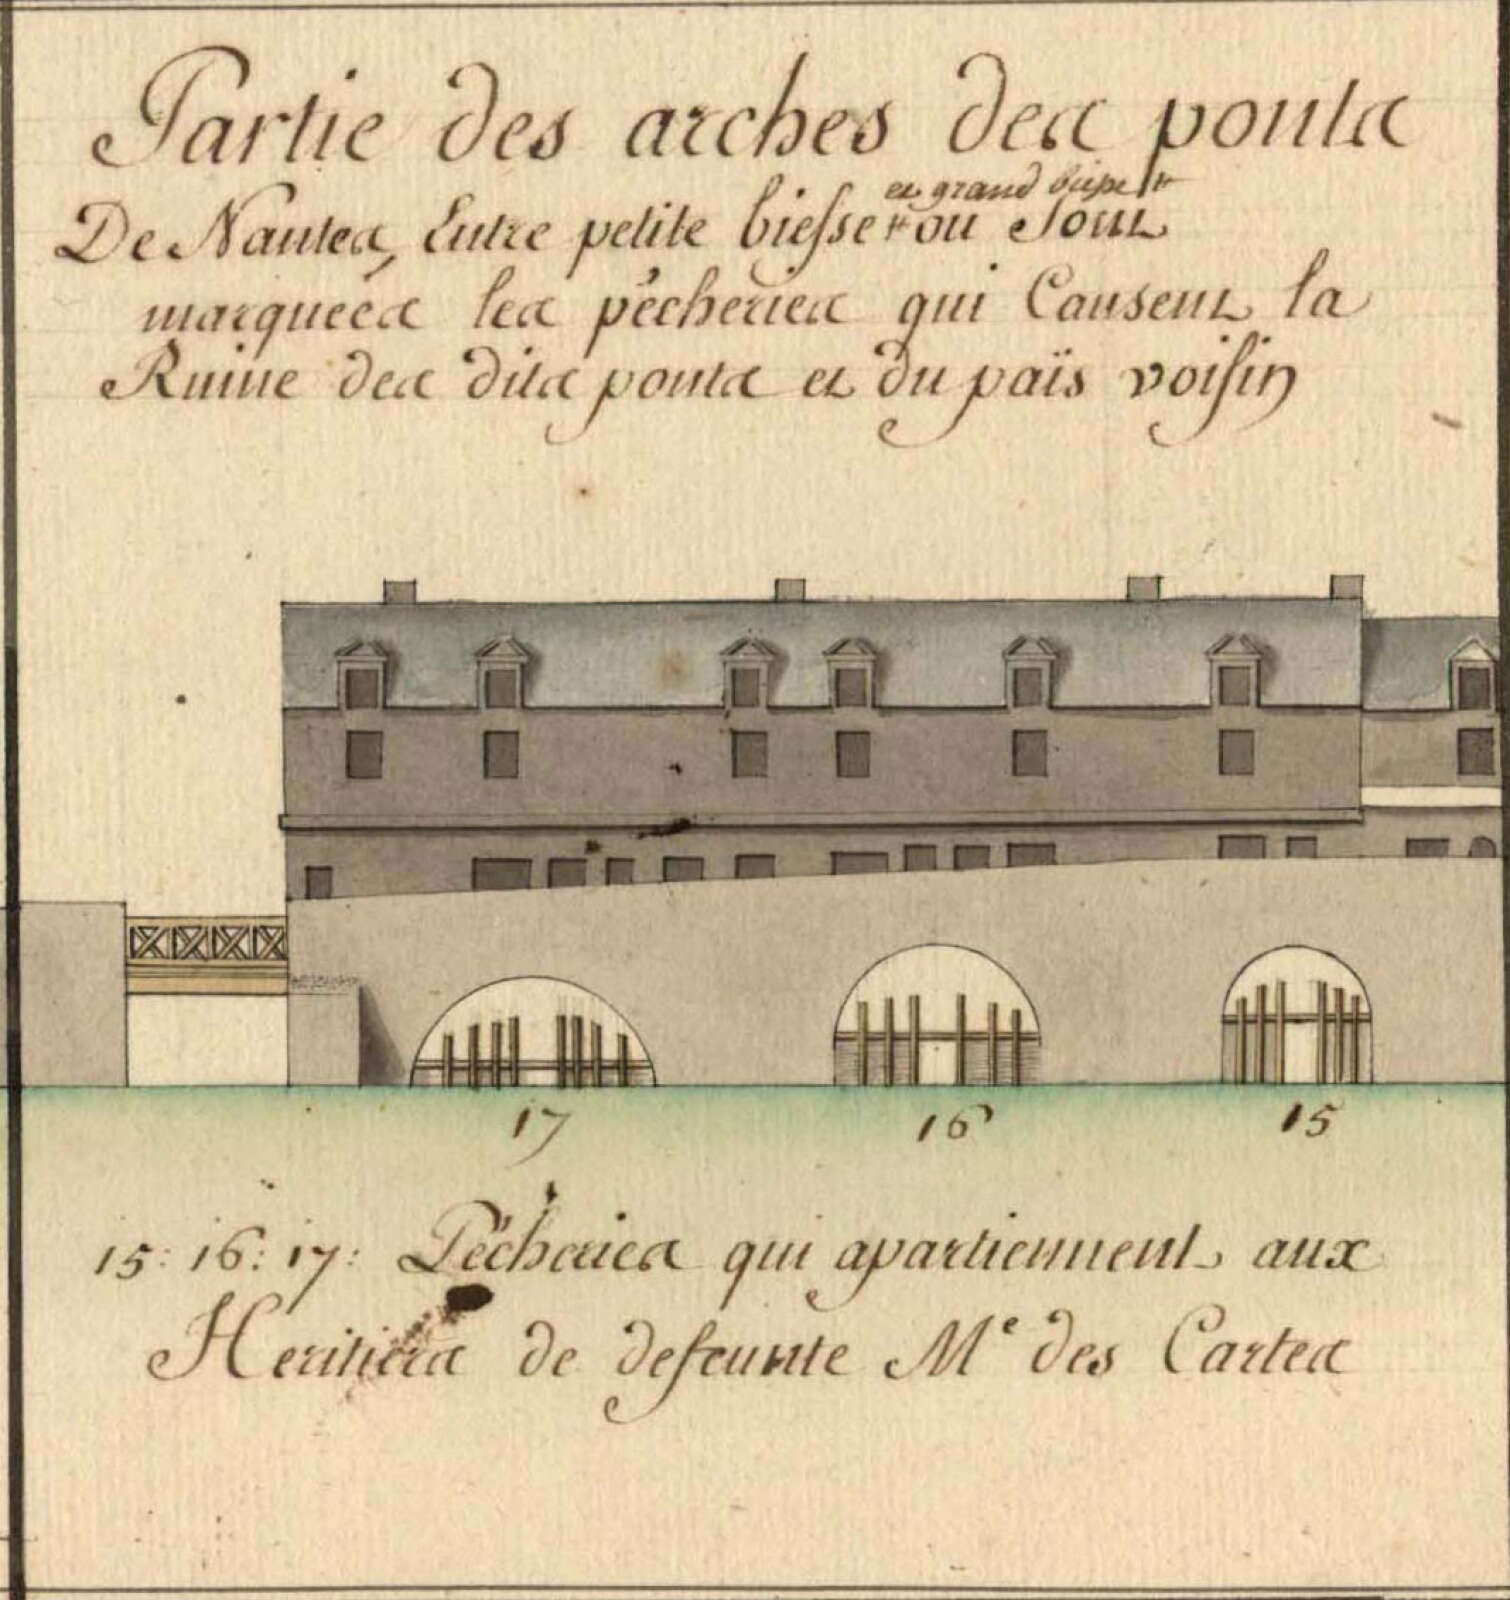 Partie des arches des ponts
De Nantes, Entre petite biesse # et grand biesse # ou sont
marquées les pêcheries qui Causent la
Ruine des dits ponts et du païs voisin
17 16 15
15: 16: 17: Pêcheries qui apartiennent aux
Heritiers de defeunte Me des Cartes